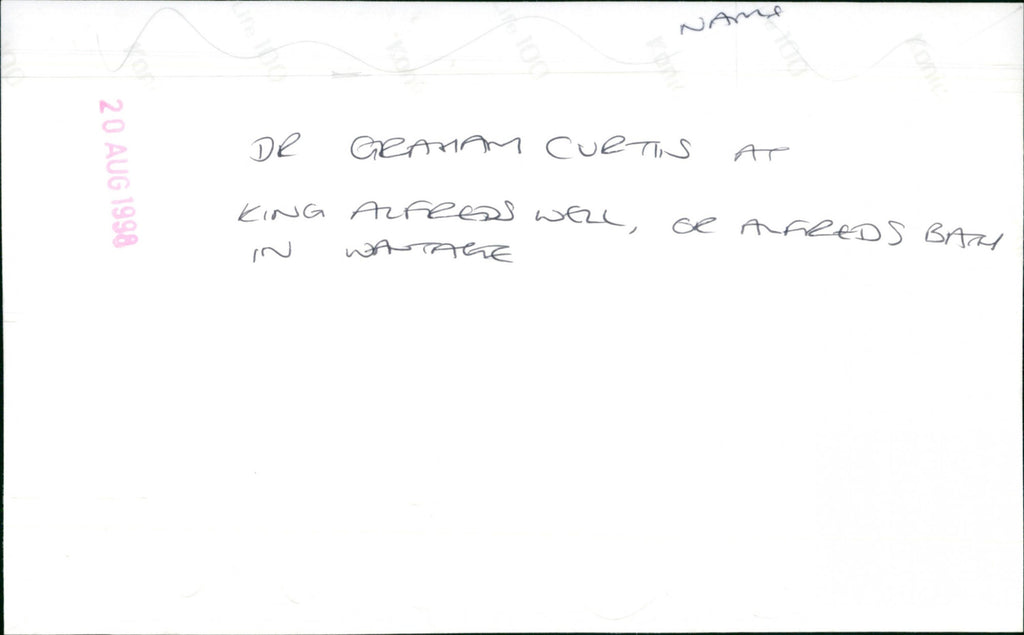 NAME
20 AUG 1998
DR GRAHAM CURTIS AT
KING ALFREDS WELL, OR ALFREDS BATH
IN WANTAGE